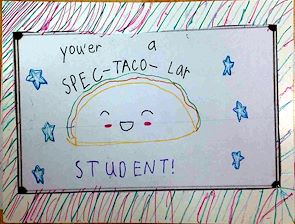 you'er a
SPEC-TACO-Lar
STUDENT!